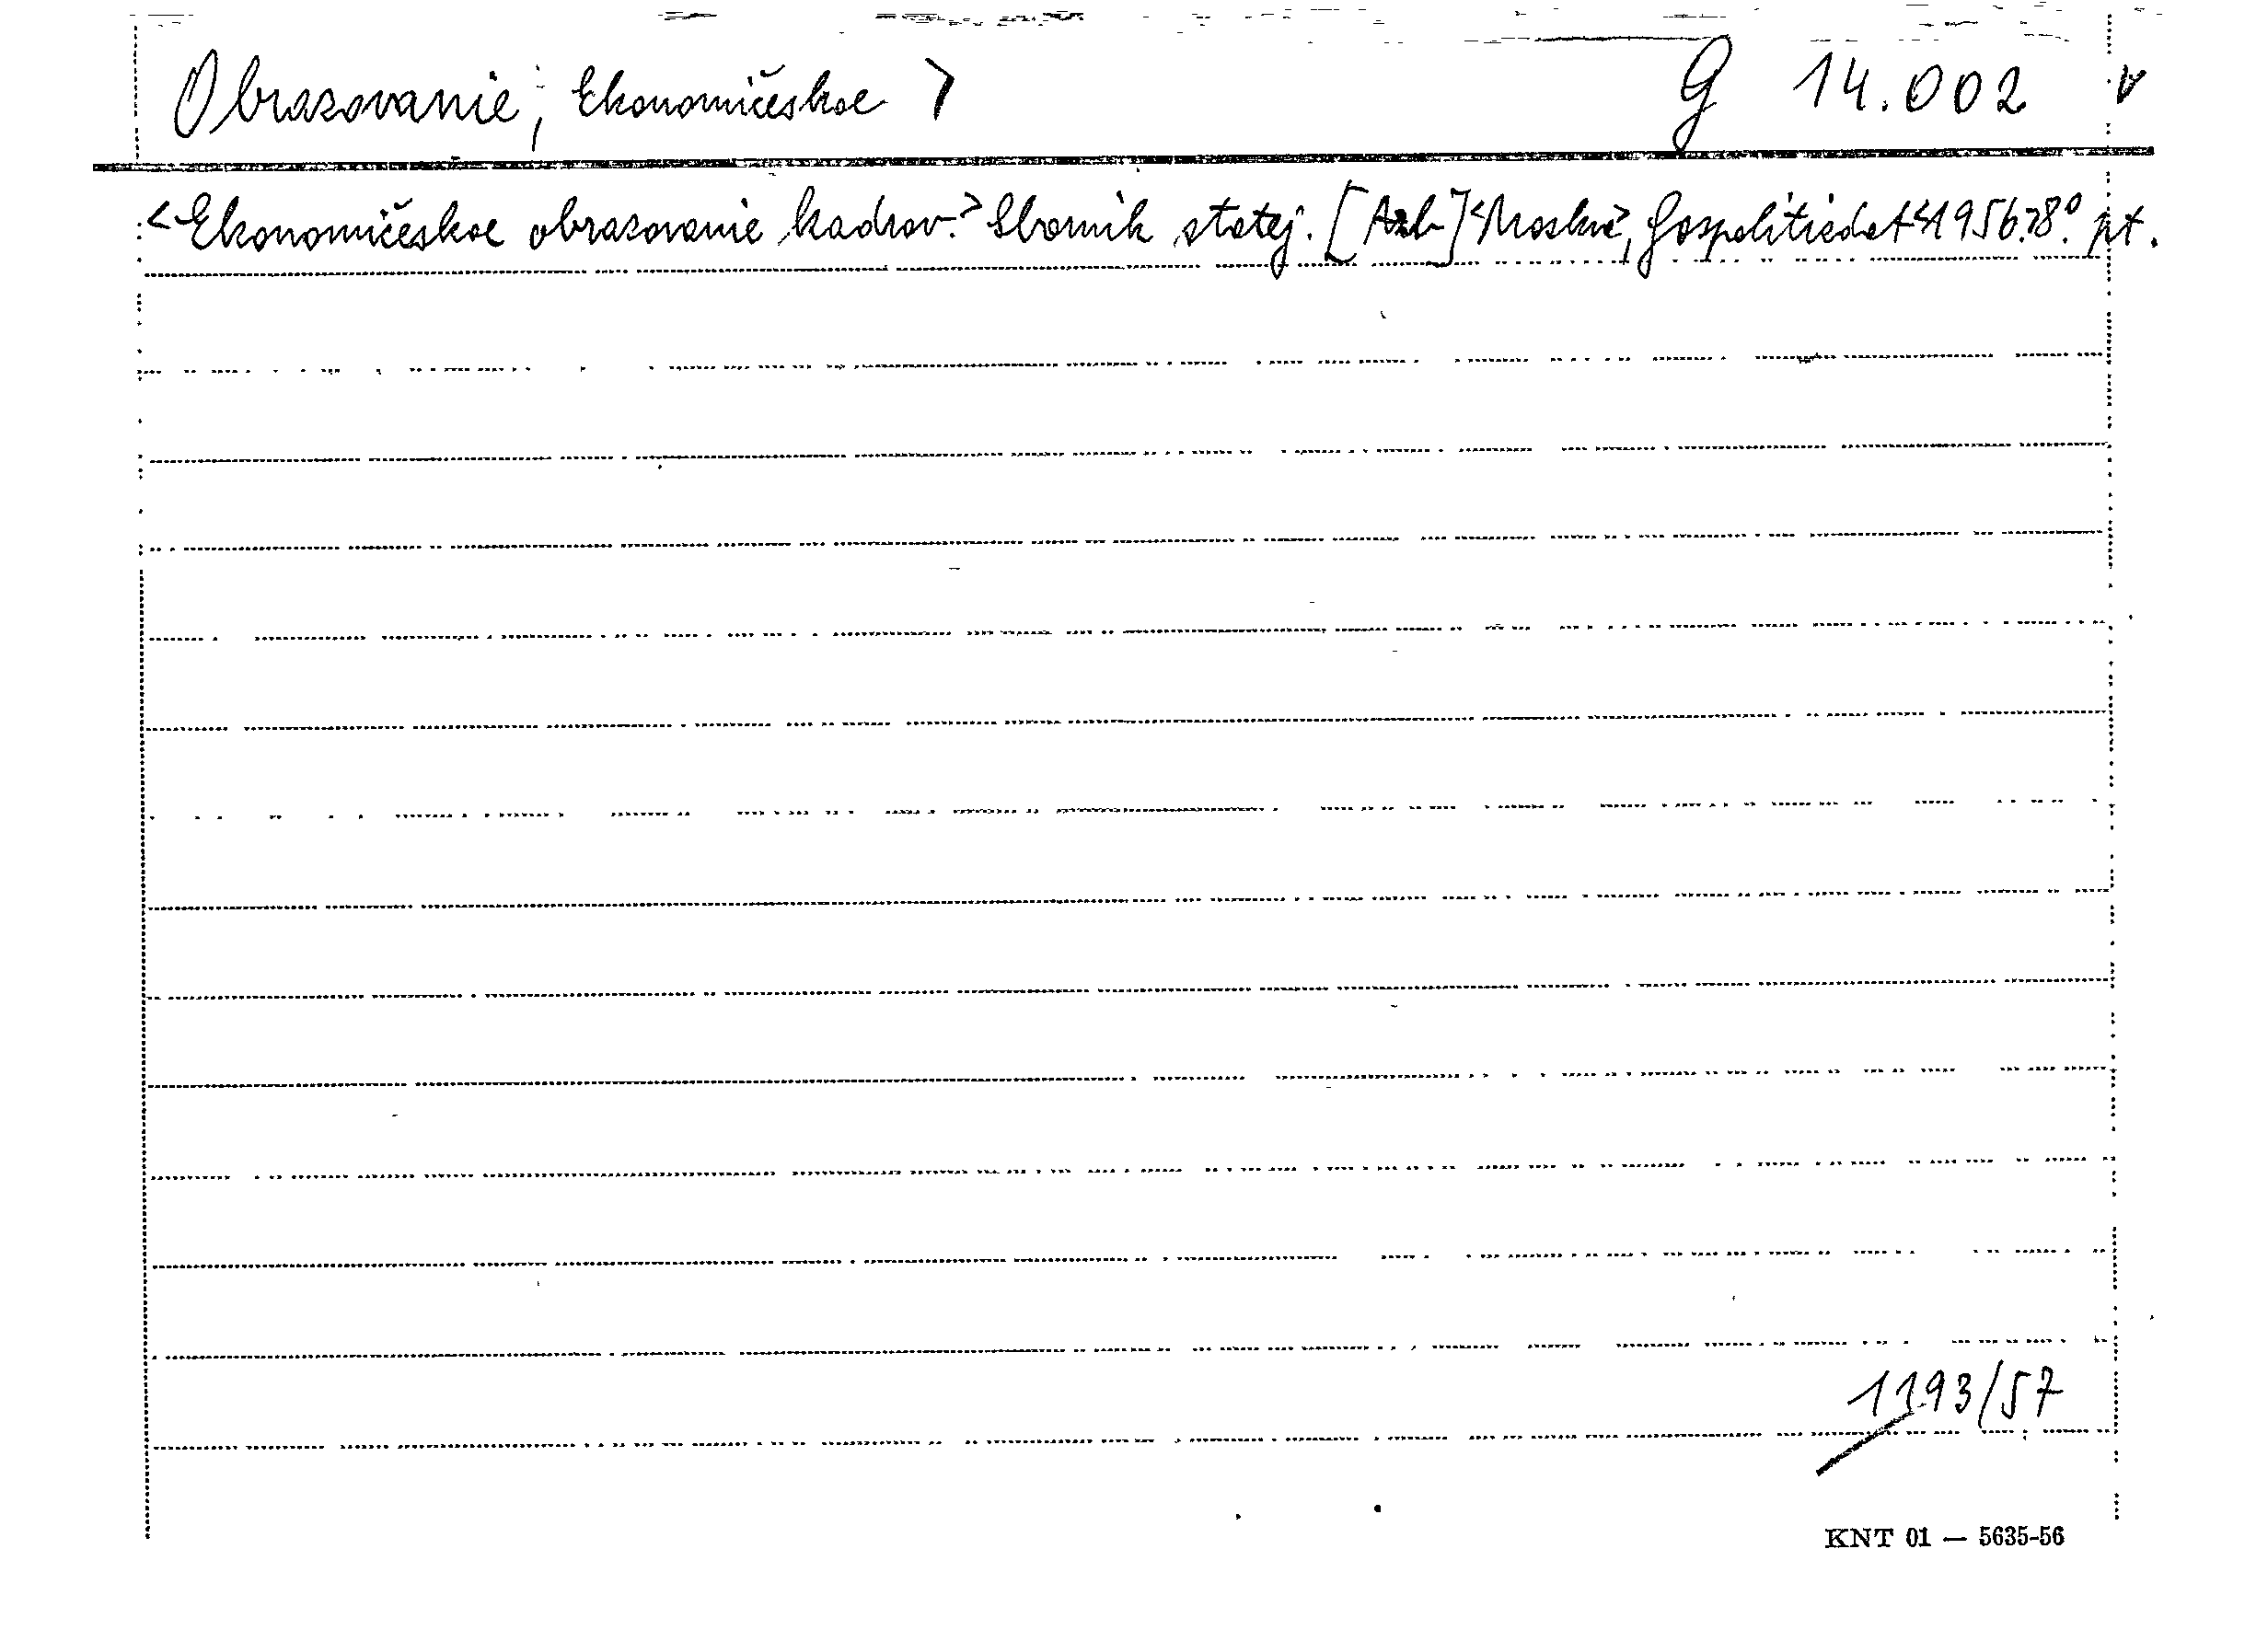 Obrazovanie, Ekonomičeskoe > G 14.002
<Ekonomičeskoe obrazovanie kadrov.> Sbornik statej. [Azb] <Moskva>, Gospolitizdat <1956.> 8°. pt.
1193/57
KNT 01 — 5635-56